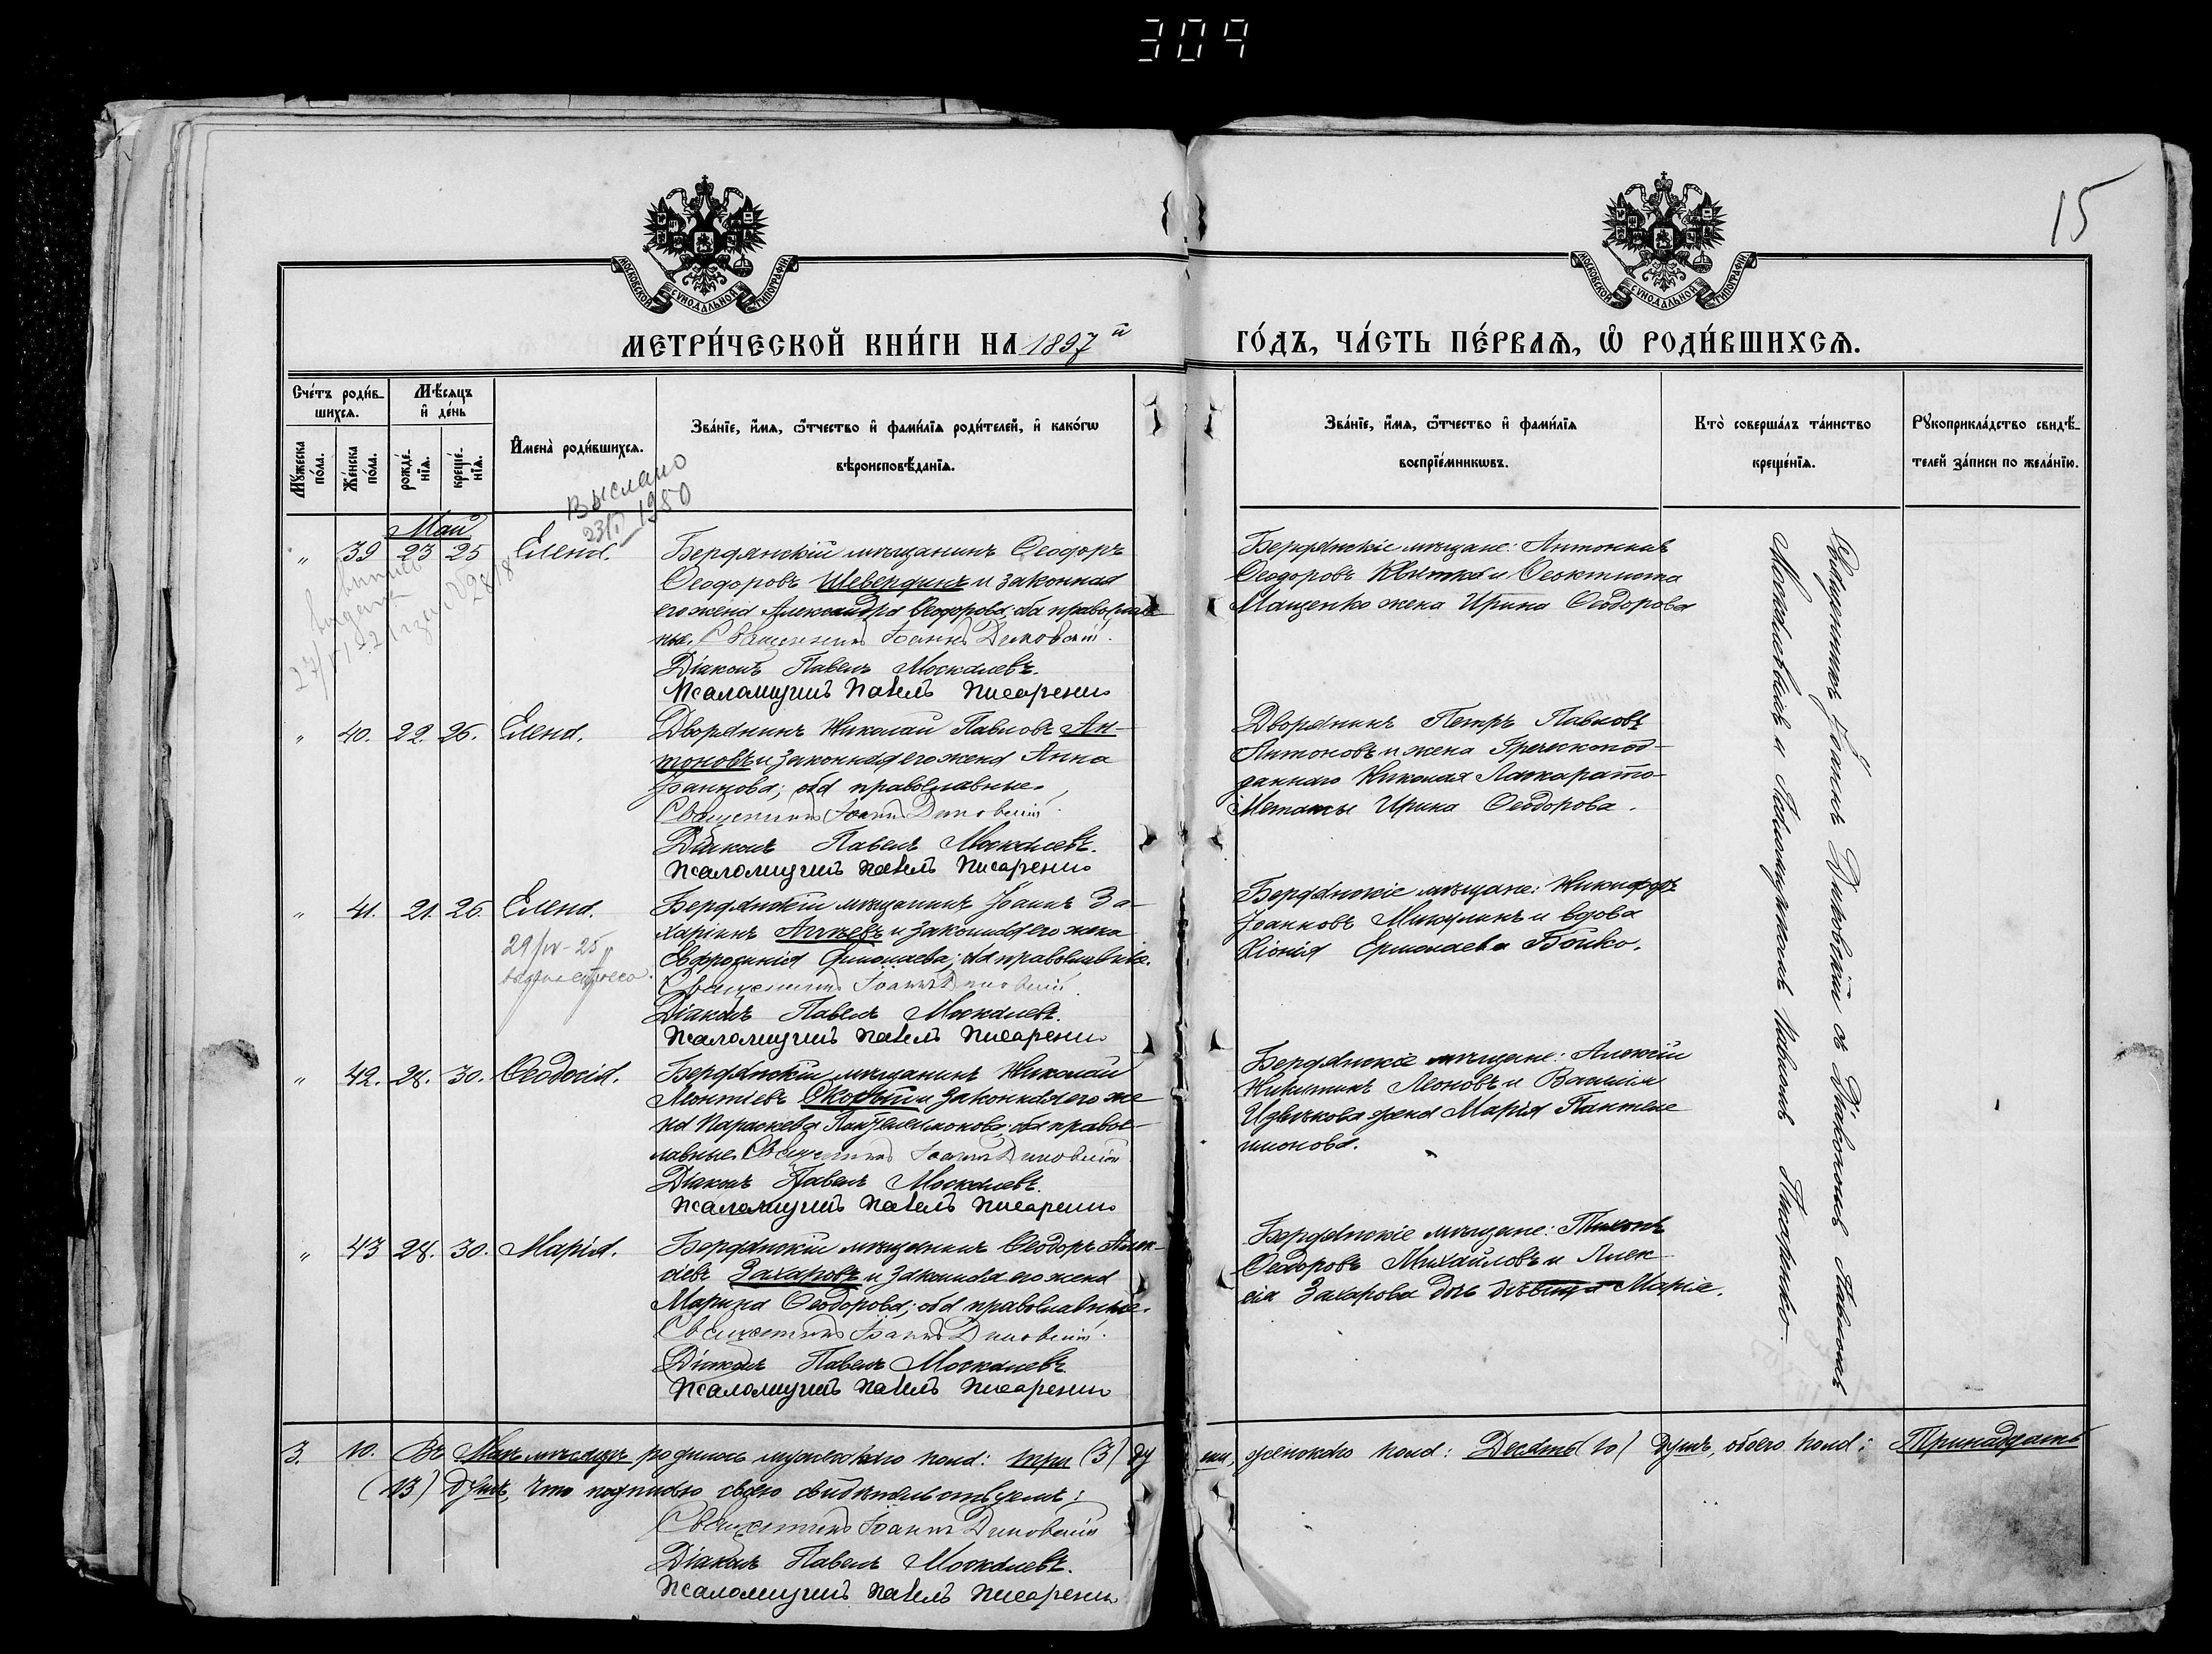 309
15
МОСКОВСКОЙ СѴНОДАЛЬНОЙ ТИПОГРАФІИ
МОСКОВСКОЙ СѴНОДАЛЬНОЙ ТИПОГРАФІИ
МЕТРИ́ЧЕСКОЙ КНИ́ГИ НА 1897й
ГО́ДЪ, ЧА́СТЬ ПЕ́РВАѦ, Ѡ РОДИ́ВШИХСѦ.
Сче́тъ роди́в-
шихся.
Мѣ́сяцъ
и҆ де́нь
Мꙋ́жеска по́ла.
Же́нска по́ла.
рожде́-
нїя.
креще́-
нїя.
И҆мена̀ роди́вшихся.
Зва́нїе, и҆́мя, ѻ҆́тчество и҆ фами́лїя роди́телей, и҆ како́гѡ
вѣроисповѣ́данїя.
Зва́нїе, и҆́мя, ѻ҆́тчество и҆ фами́лїя
воспрїе́мникѡвъ.
Кто̀ соверша́лъ та́инство
креще́нїя.
Рꙋкоприкла́дство свидѣ́-
телей за́писи по жела́нїю.
Выслано
1950
Май
" 39 23 25 Елена.
Бердянскій мѣщанинъ Ѳеодоръ
Ѳеодоровъ Шевердинъ и законная
его жена Александра Ѳеодорова; оба православ-
ные. Священникъ Іоаннъ Диковскій.
Діаконъ Павелъ Москалевъ.
Псаломщикъ Павелъ Писаренко
Бердянскіе мѣщане: Антоній
Ѳеодоровъ Квитка и Ѳеоктиста
Мащенко жена Ирина Ѳеодорова
" 40. 22. 25. Елена.
Дворянинъ Николай Павловъ Ан-
тоновъ и законная его жена Анна
Іоаннова; оба православные.
Священникъ Іоаннъ Диковскій.
Діаконъ Павелъ Москалевъ.
Псаломщикъ Павелъ Писаренко
Дворянинъ Петръ Павловъ
Антоновъ и жена Греческопод-
даннаго Николая Ласкарато-
Метаксы Ирина Ѳеодорова.
" 41. 21. 26. Елена.
29/IV-25
Бердянскій мѣщанинъ Іоаннъ За-
харіинъ и законная его жена
Евфросинія Ермолаева; оба православные.
Священникъ Іоаннъ Диковскій.
Діаконъ Павелъ Москалевъ.
Псаломщикъ Павелъ Писаренко
Бердянскіе мѣщане: Никифоръ
Іоанновъ Микулинъ и вдова
Хіонія Ермолаева Бойко.
" 42. 28. 30. Ѳеодосія.
Бердянскій мѣщанинъ Николай
Леонтіевъ и законная его же-
на Параскева Пантелеимонова; оба правос-
лавные. Священникъ Іоаннъ Диковскій
Діаконъ Павелъ Москалевъ.
Псаломщикъ Павелъ Писаренко
Бердянскіе мѣщане: Алексій
Никитинъ Леоновъ и Василія
Извѣкова жена Марія Пантелеи-
монова.
" 43 28. 30. Марія.
Бердянскій мѣщанинъ Ѳеодоръ Алек-
сіевъ Захаровъ и законная его жена
Марина Ѳеодорова; оба православные.
Священникъ Іоаннъ Диковскій.
Діаконъ Павелъ Москалевъ.
Псаломщикъ Павелъ Писаренко
Бердянскіе мѣщане: Тихонъ
Ѳеодоровъ Михайловъ и Алек-
сія Захарова дочь дѣвица Марія.
Священникъ Іоаннъ Диковскій съ Діакономъ Павломъ
Москалевымъ и Псаломщикомъ Павломъ Писаренко.
3. 10. Въ Маѣ мѣсяцѣ родилось мужескаго пола: три (3) ду
ши, женскаго пола: Десять (10) душъ, обоего пола: Тринадцать
(13) душъ, что подписью своею свидѣтельствуемъ:
Священникъ Іоаннъ Диковскій
Діаконъ Павелъ Москалевъ.
Псаломщикъ Павелъ Писаренко